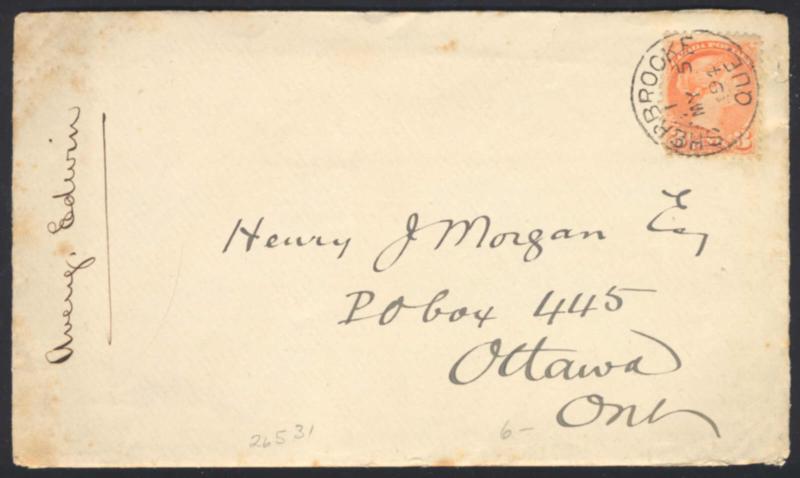 SHERBROOKE QUE
5
MY 1
94
3
Avery, Edwin
Henry J Morgan Esq
P.O box 445
Ottawa
Ont
26531
6-